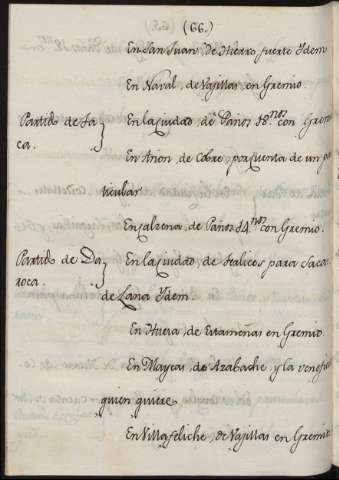 (66.)
En San Juan, de Hierro fuerte Ydem
En Naval, de Vajillas en Gremio
Partido de Ja
ca.
En la ciudad, de Paños 18.nos con Gremio
En Añon, de Cobre, por quenta de un pa
ticular.
En Salrena, de Paños 14.nos con Gremio.
Partido de Da
roca
En la ciudad, de para Saca
de Lana Ydem.
En Huesa, de Estameñas en Gremio.
En Maycas, de Azabache, y la venefi
quien quiere
En Villafeliche, de Vajillas en Gremio